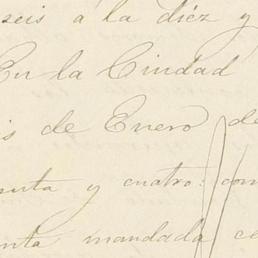 seis á la diéz y
En la Ciudad
is de Enero de
enta y cuatro: com
nta mandada ce